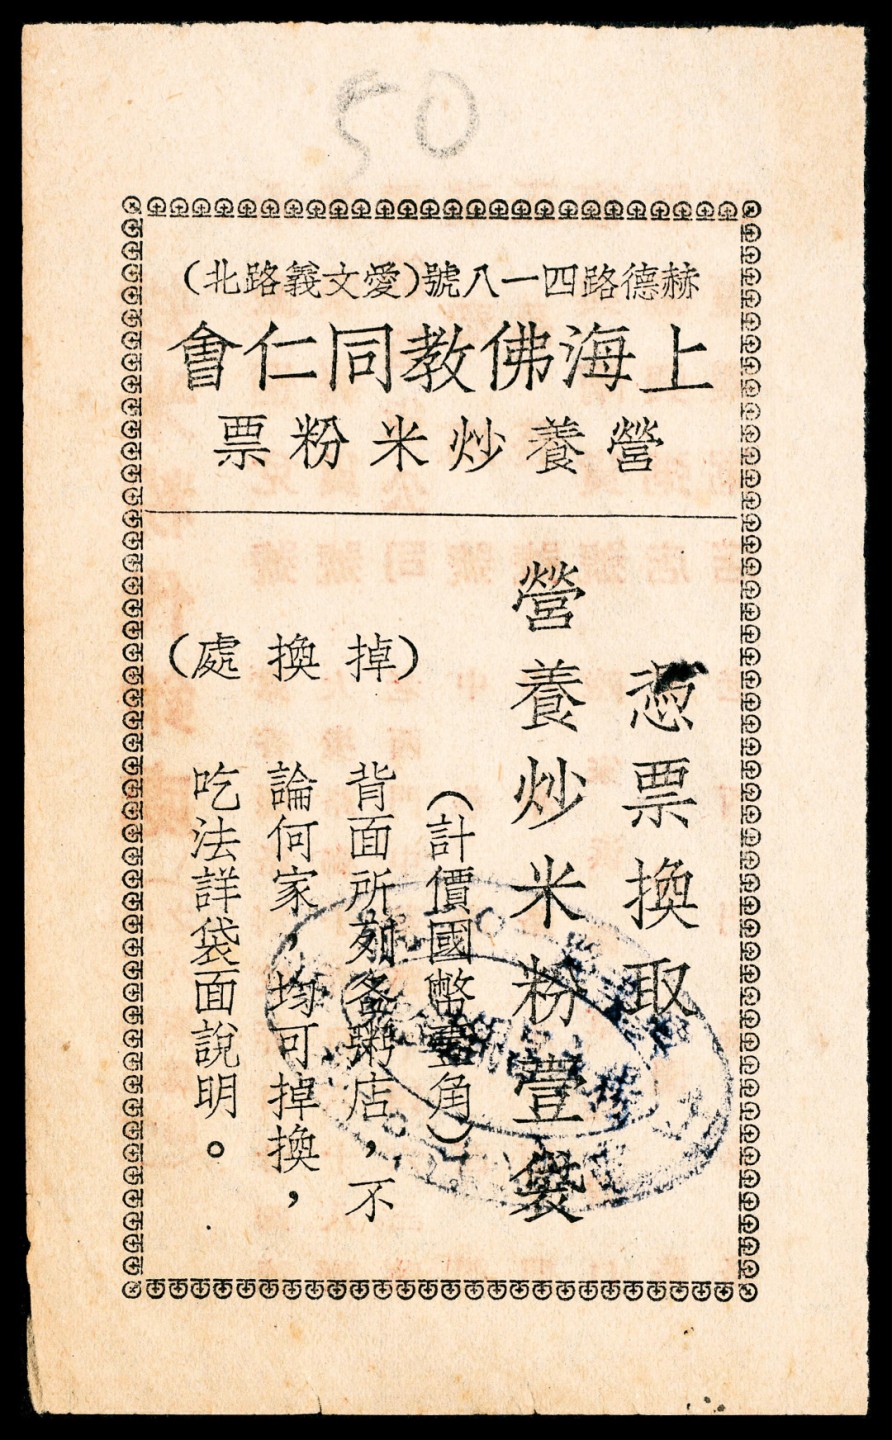 50
赫德路四一八號（愛文義路北）
上海佛教同仁會
營養炒米粉票
憑票換取
營養炒米粉壹袋
（計價國幣壹角）
（掉換處）
背面所列各粥店，不
論何家，均可掉換，
吃法詳袋面說明。